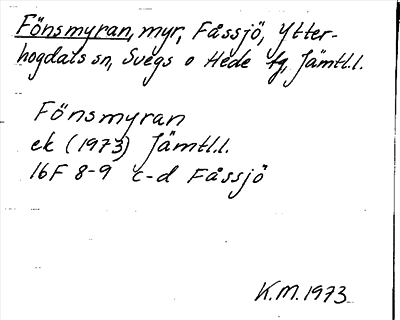 Fönsmyran, myr, Fåssjö, Ytter-
hogdals sn, Svegs o Hede tg, Jämtl.l.
Fönsmyran
ek (1973) Jämtl.l.
16F 8-9 c-d Fåssjö
K.M. 1973